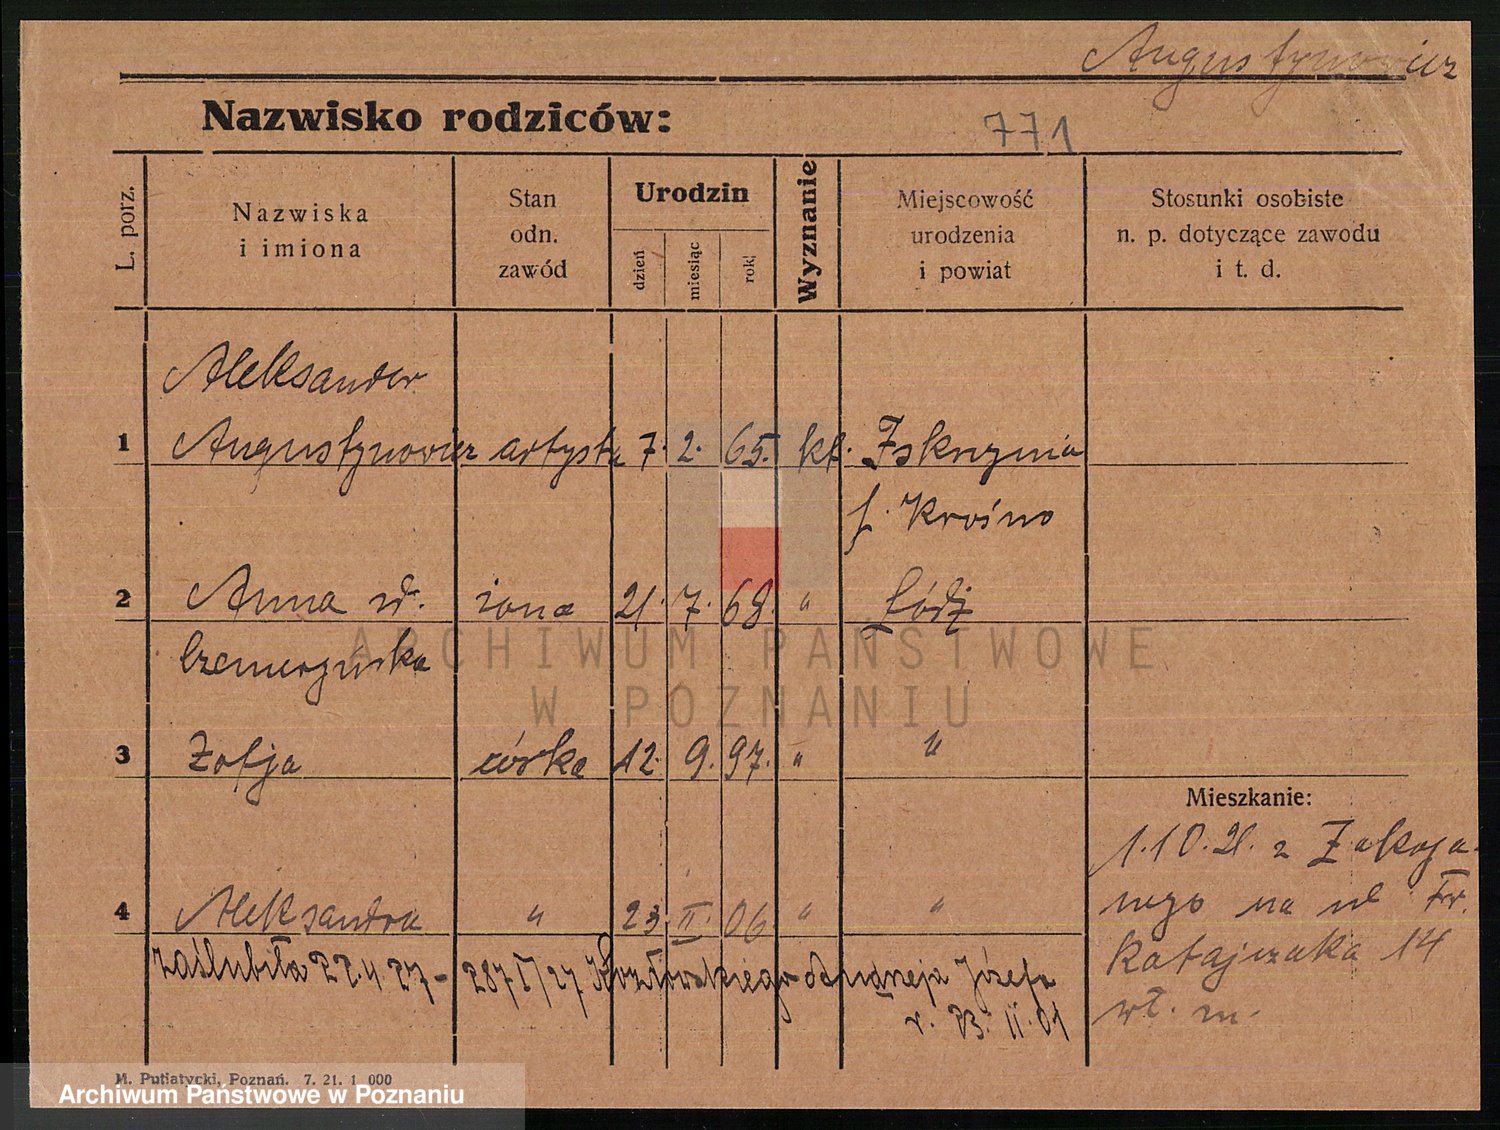 Augustynowicz
Nazwisko rodziców:
771
L. porz.
Nazwiska i imiona
Stan odn. zawód
Urodzin
dzień
miesiąc
rok
Wyznanie
Miejscowość urodzenia i powiat
Stosunki osobiste n. p. dotyczące zawodu i t. d.
Aleksander
1 Augustynowicz artysta 7. 2. 65. kt. Iskrzynia
p. Krosno
2 Anna żona 21. 7. 68. " Łódź
3 Zofja córka 12. 9. 97. " "
Mieszkanie:
1.10.21. z Zakopa-
nego na ul Fr.
Ratajczaka 14
wł. m.
4 Aleksandra " 23. II. 06 " "
zaślubiła 22.4 27 - Kozłowskiego Józefa
r. II. 01
M. Putiatycki, Poznań. 7. 21. 1 000
ARCHIWUM PAŃSTWOWE
W POZNANIU
Archiwum Państwowe w Poznaniu